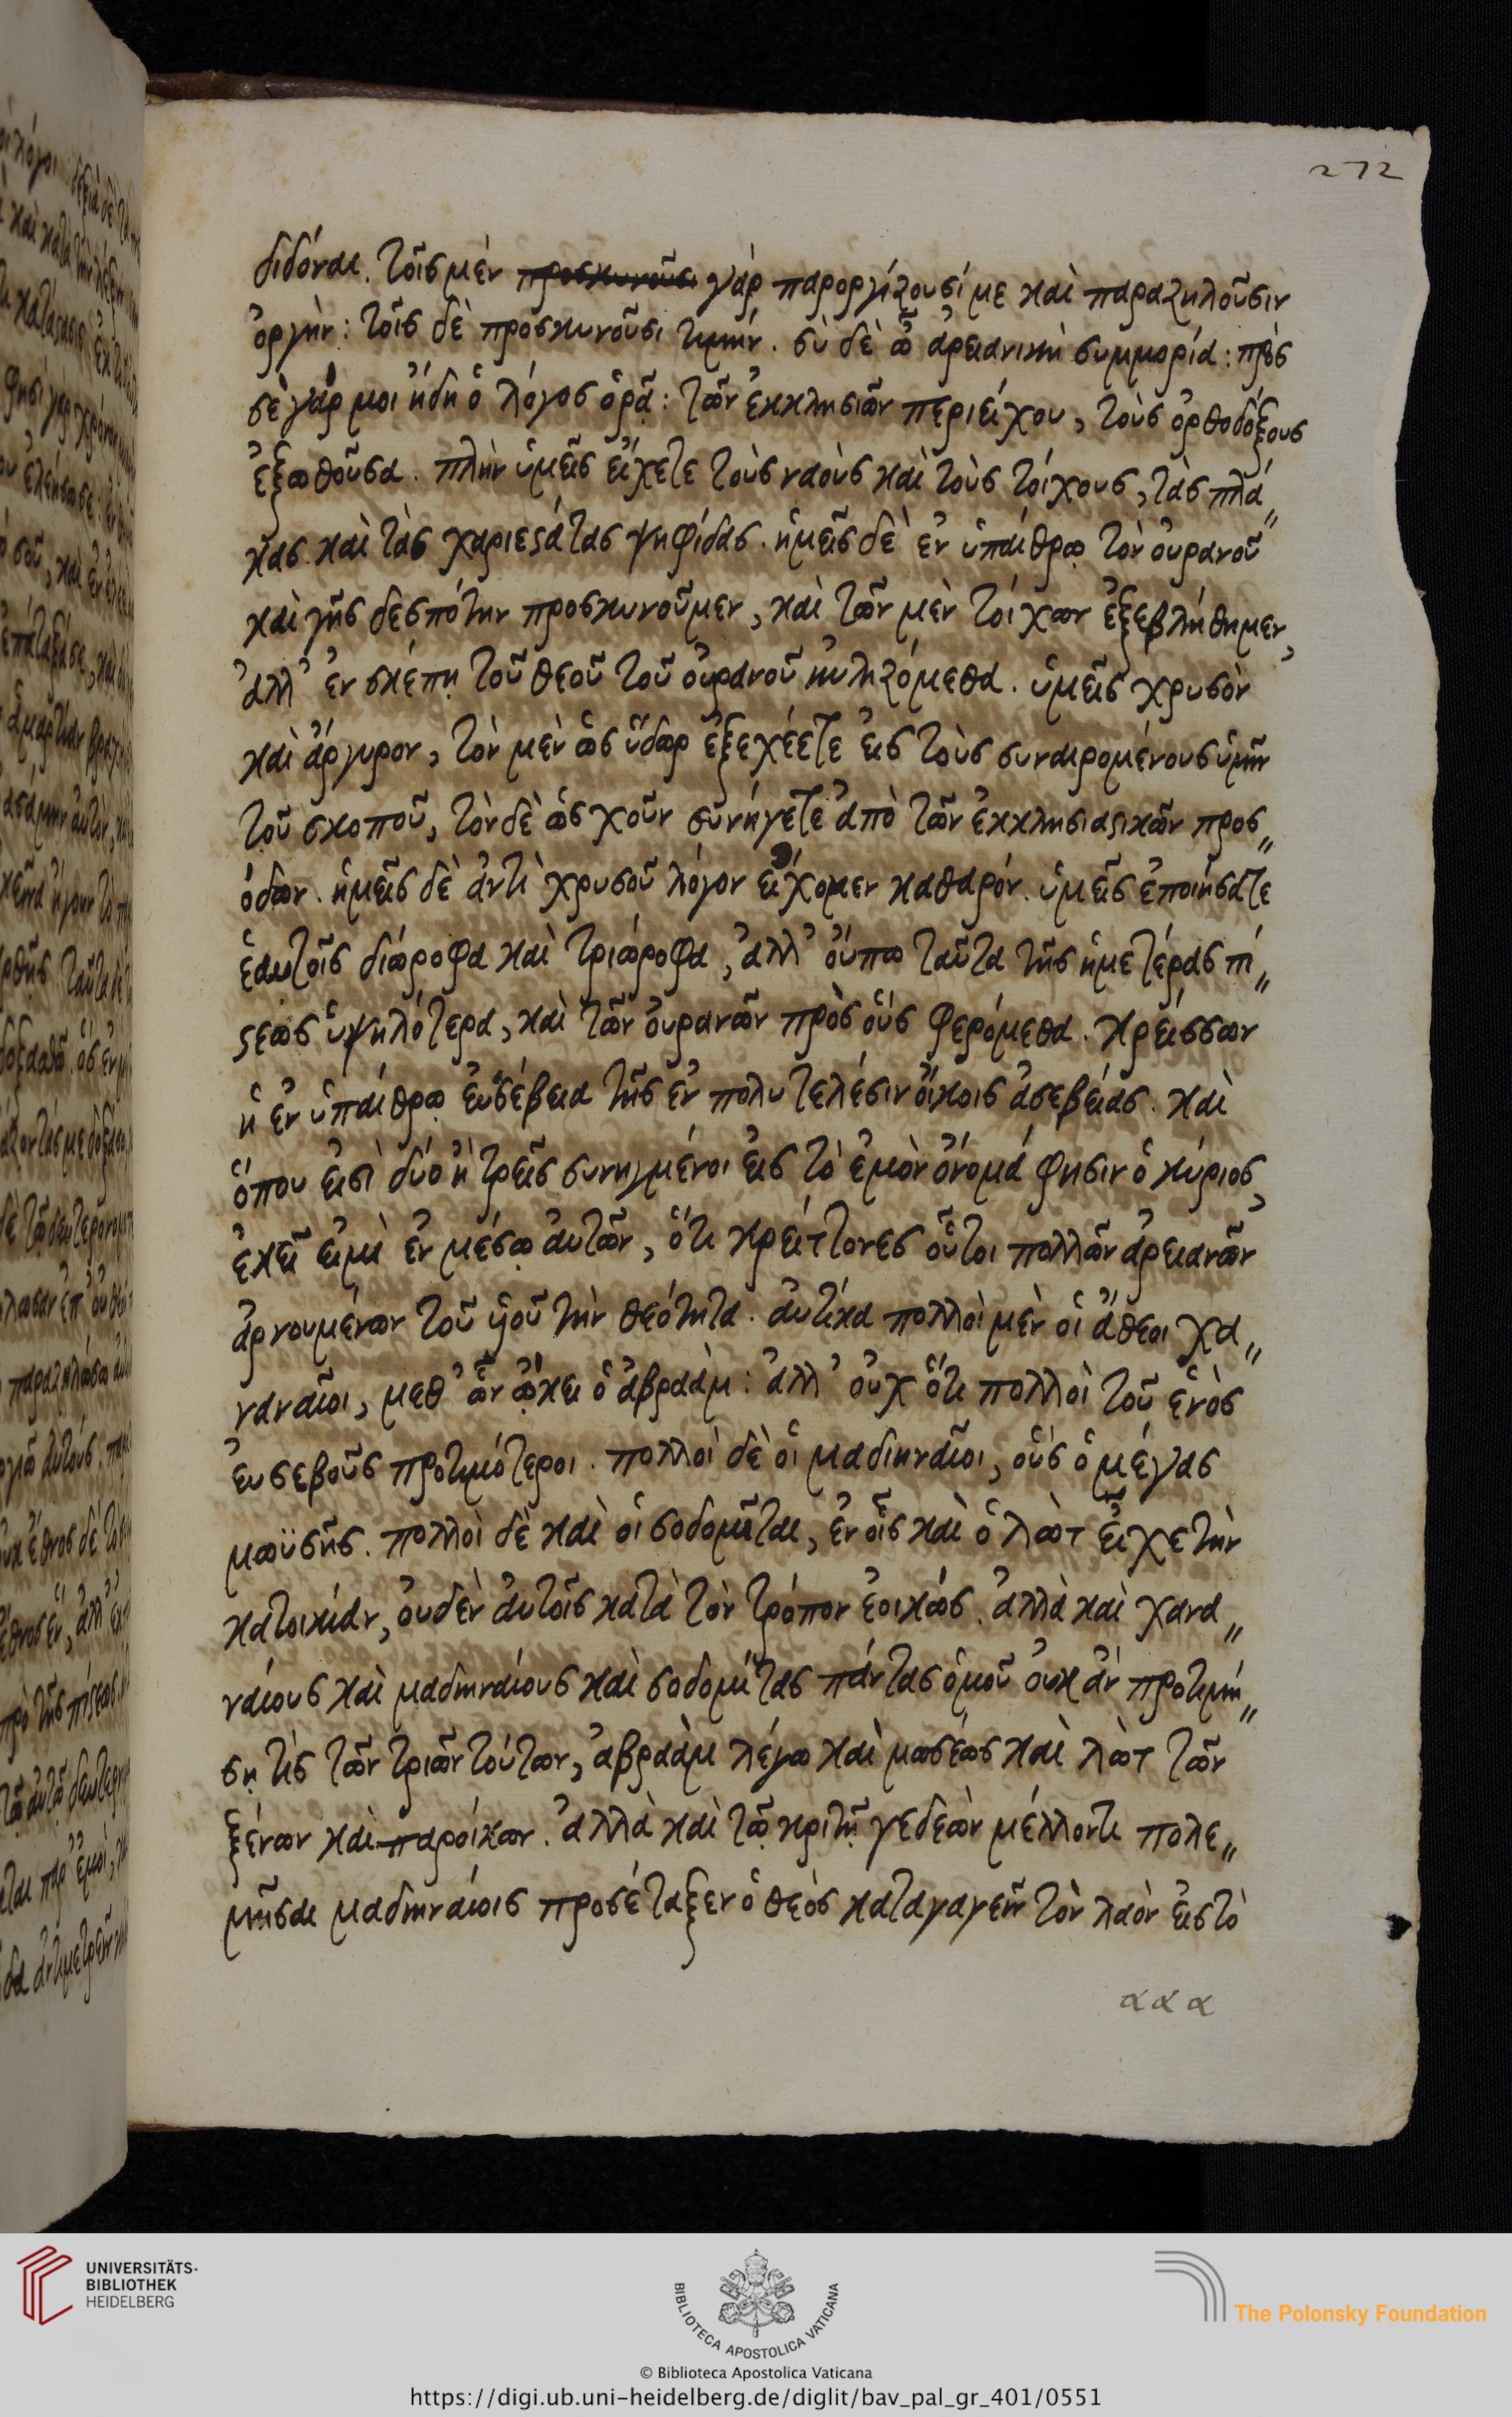 272
διδόναι. τοῖς μὲν προσκυνοῦσι γὰρ παροργίζουσί με καὶ παραζηλοῦσιν
ὀργήν: τοῖς δὲ προσκυνοῦσι τιμήν. σὺ δὲ ὦ ἀρειανικὴ συμμορία: πρὸς
σὲ γάρ μοι ἤδη ὁ λόγος ὁρᾷ: τῶν ἐκκλησιῶν περιείχου, τοὺς ὀρθοδόξους
ἐξωθοῦσα. πλὴν ὑμεῖς εἴχετε τοὺς ναοὺς καὶ τοὺς τοίχους, τὰς πλά„
κας καὶ τὰς χαριεστάτας ψηφίδας. ἡμεῖς δὲ ἐν ὑπαίθρῳ τὸν οὐρανοῦ
καὶ γῆς δεσπότην προσκυνοῦμεν, καὶ τῶν μὲν τοίχων ἐξεβλήθημεν,
ἀλλ' ἐν σκέπῃ τοῦ θεοῦ τοῦ οὐρανοῦ ηὐλιζόμεθα. ὑμεῖς χρυσὸν
καὶ ἄργυρον, τὸν μὲν ὡς ὕδωρ ἐξεχέετε εἰς τοὺς συναιρομένους ὑμῖν
τοῦ σκοποῦ, τὸν δὲ ὡς χοῦν συνήγετε ἀπὸ τῶν ἐκκλησιαστικῶν προσ„
όδων. ἡμεῖς δὲ ἀντὶ χρυσοῦ λόγον εἴχομεν καθαρόν. ὑμεῖς ἐποιήσατε
ἑαυτοῖς διώροφα καὶ τριώροφα, ἀλλ' οὔπω ταῦτα τῆς ἡμετέρας πί„
στεως ὑψηλότερα, καὶ τῶν οὐρανῶν πρὸς οὓς φερόμεθα. κρείσσων
ἡ ἐν ὑπαίθρῳ εὐσέβεια τῆς ἐν πολυτελέσιν οἴκοις ἀσεβείας. καὶ
ὅπου εἰσὶ δύο ἢ τρεῖς συνηγμένοι εἰς τὸ ἐμὸν ὄνομά φησιν ὁ κύριος,
ἐκεῖ εἰμὶ ἐν μέσῳ αὐτῶν, ὅτι κρείττονες οὗτοι πολλῶν ἀρειανῶν
ἀρνουμένων τοῦ υἱοῦ τὴν θεότητα. αὐτίκα πολλοὶ μὲν οἱ ἄθεοι χα„
ναναῖοι, μεθ' ὧν ᾤκει ὁ ἀβραάμ: ἀλλ' οὐχ ὅτι πολλοὶ τοῦ ἑνὸς
εὐσεβοῦς προτιμότεροι. πολλοὶ δὲ οἱ μαδιηναῖοι, οὓς ὁ μέγας
μωϋσῆς. πολλοὶ δὲ καὶ οἱ σοδομῖται, ἐν οἷς καὶ ὁ λὼτ εἶχε τὴν
κατοικίαν, οὐδὲν αὐτοῖς κατὰ τὸν τρόπον ἐοικώς. ἀλλὰ καὶ χανα„
ναίους καὶ μαδιηναίους καὶ σοδομίτας πάντας ὁμοῦ οὐκ ἂν προτιμή„
σῃ τὶς τῶν τριῶν τούτων, ἀβραὰμ λέγω καὶ μωσέως καὶ λὼτ τῶν
ξένων καὶ παροίκων. ἀλλὰ καὶ τῷ κριτῇ γεδεὼν μέλλοντι πολε„
μῆσαι μαδιηναίοις προσέταξεν ὁ θεὸς καταγαγεῖν τὸν λαὸν εἰς τὸ
ααα
UNIVERSITÄTS-
BIBLIOTHEK
HEIDELBERG
BIBLIOTECA APOSTOLICA VATICANA
The Polonsky Foundation
© Biblioteca Apostolica Vaticana
https://digi.ub.uni-heidelberg.de/diglit/bav_pal_gr_401/0551